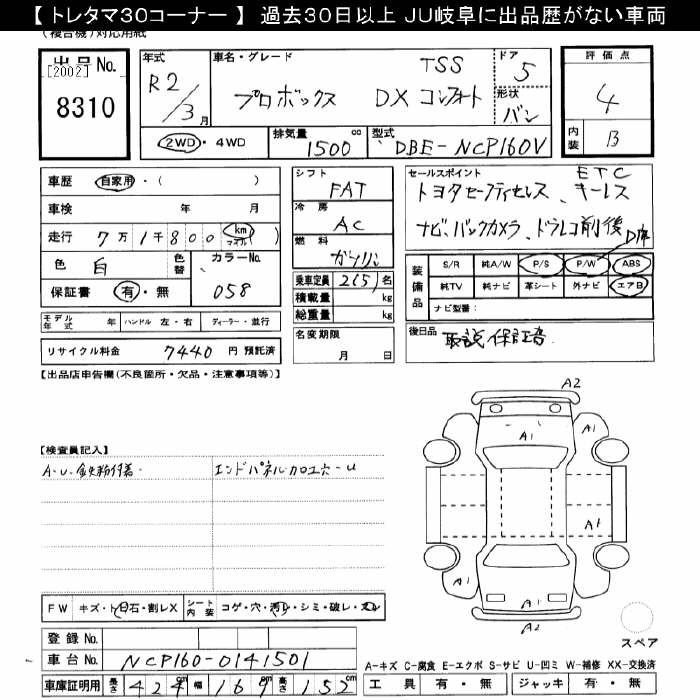 【 トレタマ30コーナー 】 過去30日以上 JU岐阜に出品歴がない車両
(複合機)対応用紙
出品No.
[2002]
8310
年式
R2/3月
車名・グレード
TSS
プロボックス DX コンフォート
ドア
5
形状
バン
評価点
4
内装 B
2WD・4WD
排気量 1500 cc
型式 DBE-NCP160V
車歴 自家用・( )
車検 年 月
走行 7万1千800 km マイル ( )
色 白
色替
カラーNo.
058
保証書 有・無
モデル年式 年 ハンドル 左・右 ディーラー・並行
リサイクル料金 7440 円 預託済
シフト
FAT
冷房
AC
燃料
ガソリン
乗車定員 2(5) 名
積載量 kg
総重量 kg
名変期限
月 日
セールスポイント ETC
トヨタセーフティセンス、キーレス
ナビ、バックカメラ、ドラレコ前後
装備品
S/R 純A/W P/S P/W ABS
純TV 純ナビ 革シート 外ナビ エアB
ナビ型番:
後日品 取説 保証書
【出品店申告欄(不良箇所・欠品・注意事項等)】
【検査員記入】
A・U・鉄粉付着・
エンドパネル加工穴・U
A2
A1
A1
A1
A1
A1
A2
スペア
FW キズ・ト・飛石・割レX
シート内装 コゲ・穴・汚レ・シミ・破レ・スレ
登録No.
車台No. NCP160-0141501
車庫証明用 長さ 424 cm 幅 169 cm 高さ 152 cm
A-キズ C-腐食 E-エクボ S-サビ U-凹ミ W-補修 XX-交換済
工具 有・無 ジャッキ 有・無